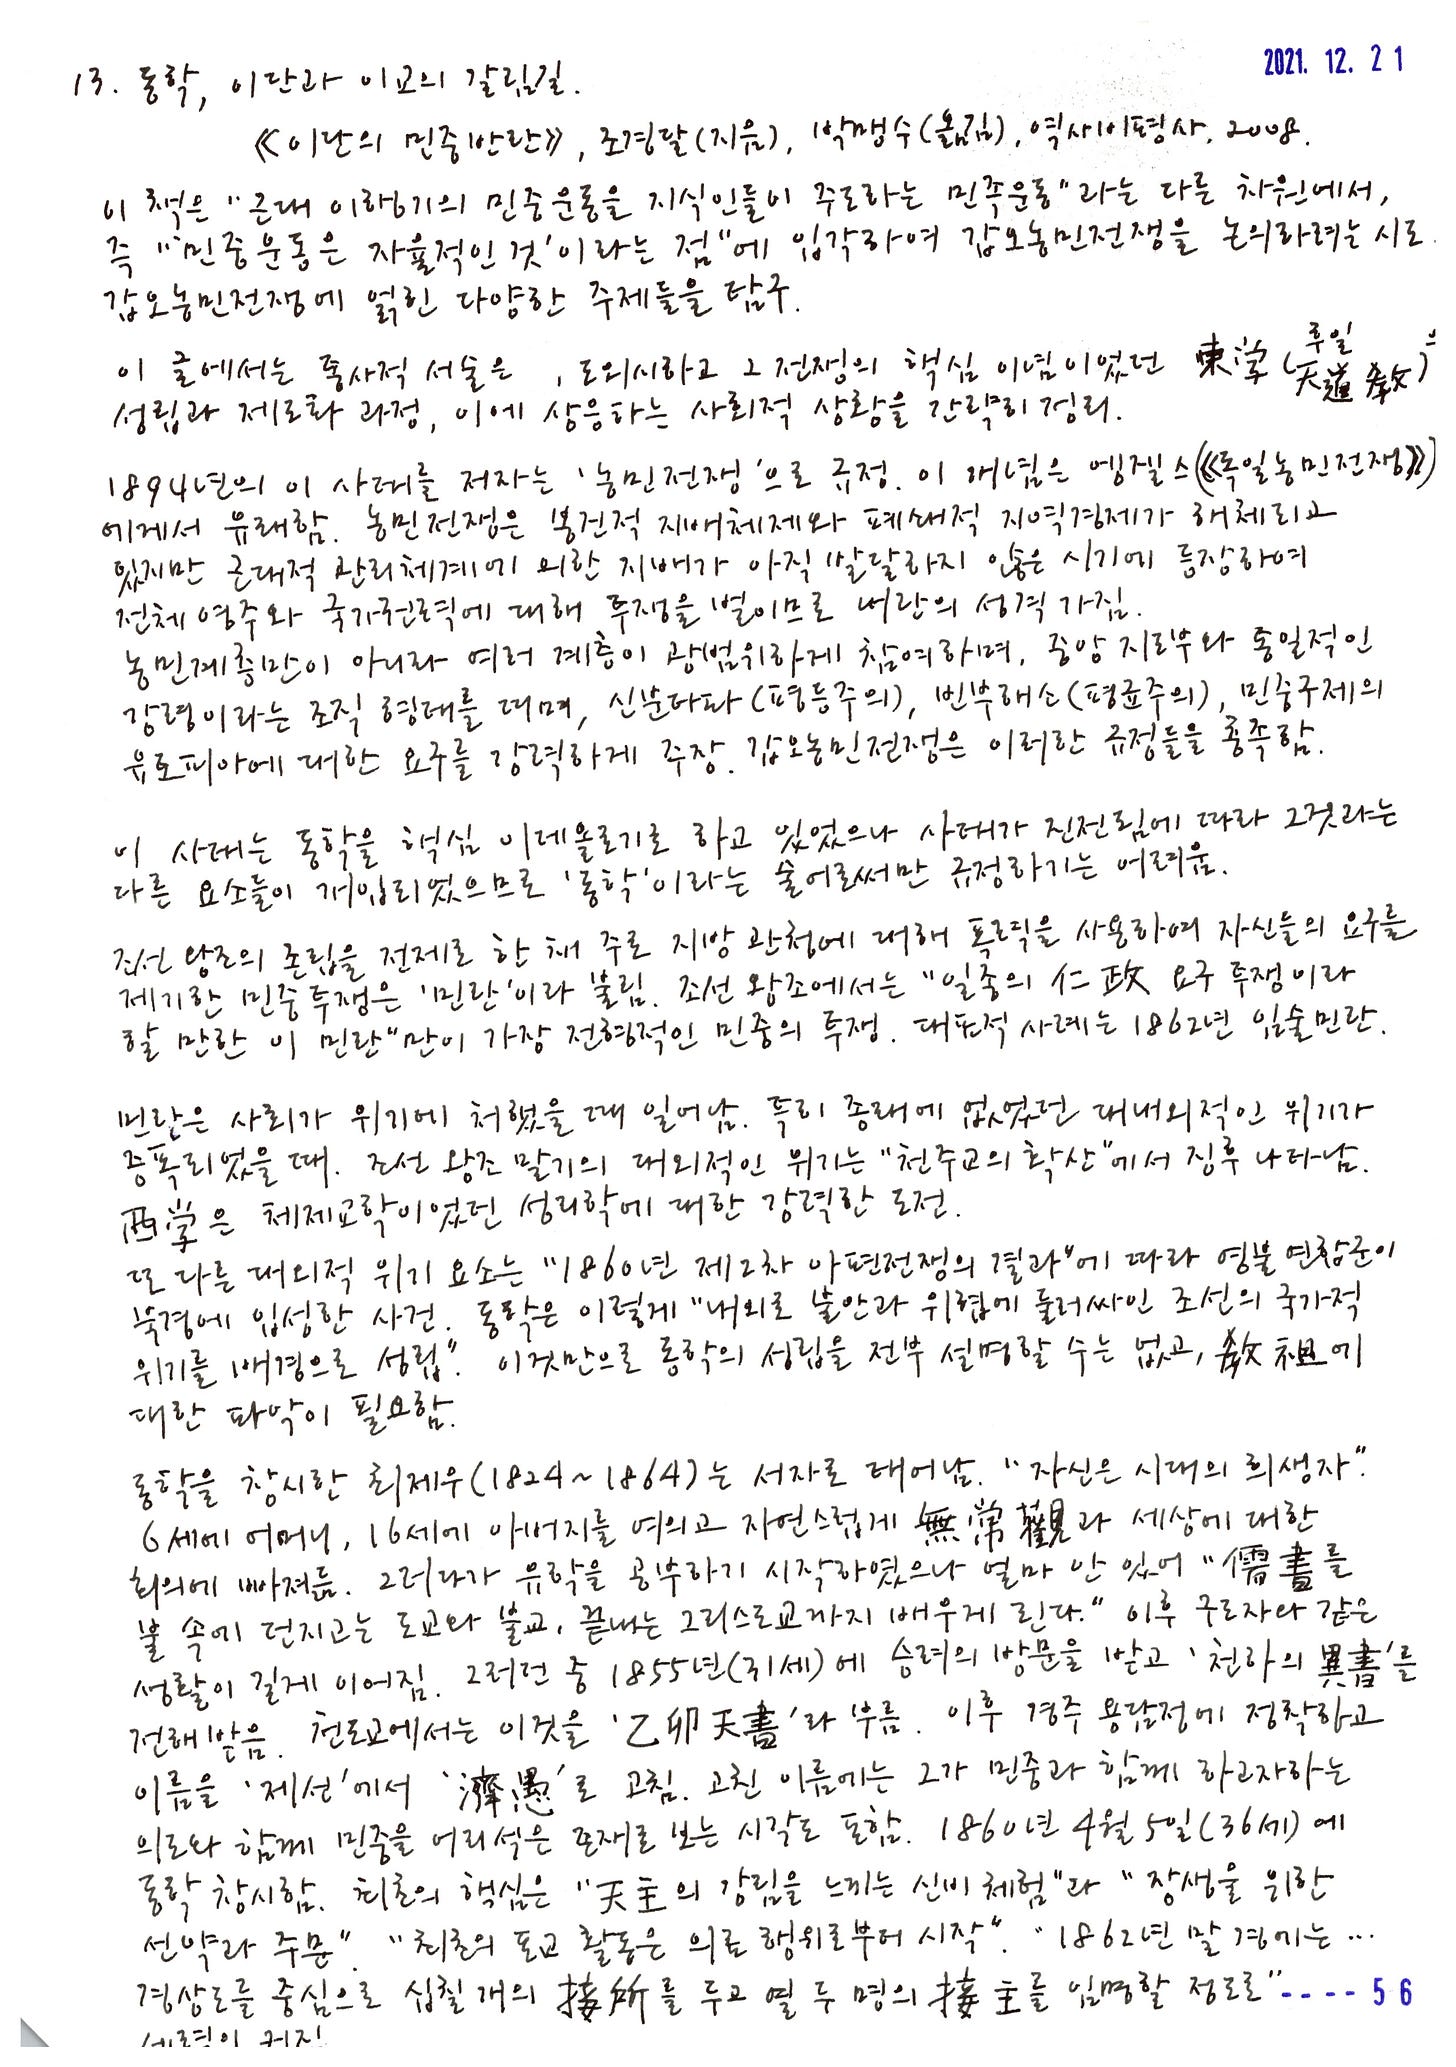 2021. 12. 21
13. 동학, 이단과 이교의 갈림길.
《이단의 민중반란》, 조경달(지음), 박맹수(옮김), 역사비평사, 2008.
이 책은 "근대 이행기의 민중운동을 지식인들이 주도하는 민족운동"과는 다른 차원에서,
즉 "'민중운동은 자율적인 것'이라는 점"에 입각하여 갑오농민전쟁을 논의하려는 시도.
갑오농민전쟁에 얽힌 다양한 주제들을 탐구.
이 글에서는 통사적 서술은 , 도외시하고 그 전쟁의 핵심 이념이었던 東学(후일 天道敎)의
성립과 제도화 과정, 이에 상응하는 사회적 상황을 간략히 정리.
1894년의 이 사태를 저자는 '농민전쟁'으로 규정. 이 개념은 엥겔스(《독일농민전쟁》)
에게서 유래함. 농민전쟁은 봉건적 지배체제와 폐쇄적 지역경제가 해체되고
있지만 근대적 관리체계에 의한 지배가 아직 발달하지 않은 시기에 등장하여
전체 영주와 국가권력에 대해 투쟁을 벌이므로 내란의 성격 가짐.
농민계층만이 아니라 여러 계층이 광범위하게 참여하며, 중앙 지도부와 통일적인
강령이라는 조직 형태를 띠며, 신분타파(평등주의), 빈부해소(평균주의), 민중구제의
유토피아에 대한 요구를 강력하게 주장. 갑오농민전쟁은 이러한 규정들을 충족함.
이 사태는 동학을 핵심 이데올로기로 하고 있었으나 사태가 진전됨에 따라 그것과는
다른 요소들이 개입되었으므로 '동학'이라는 술어로써만 규정하기는 어려움.
조선 왕조의 존립을 전제로 한 채 주로 지방 관청에 대해 폭력을 사용하여 자신들의 요구를
제기한 민중투쟁은 '민란'이라 불림. 조선 왕조에서는 "일종의 仁政 요구 투쟁이라
할 만한 이 민란"만이 가장 전형적인 민중의 투쟁. 대표적 사례는 1862년 임술민란.
민란은 사회가 위기에 처했을 때 일어남. 특히 종래에 없었던 대내외적인 위기가
증폭되었을 때. 조선 왕조 말기의 대외적인 위기는 "천주교의 확산"에서 징후 나타남.
西学은 체제교학이었던 성리학에 대한 강력한 도전.
또 다른 대외적 위기 요소는 "1860년 제2차 아편전쟁의 결과"에 따라 영불 연합군이
북경에 입성한 사건. 동학은 이렇게 "내외로 불안과 위협에 둘러싸인 조선의 국가적
위기를 배경으로 성립". 이것만으로 동학의 성립을 전부 설명할 수는 없고, 敎祖에
대한 파악이 필요함.
동학을 창시한 최제우(1824~1864)는 서자로 태어남. "자신은 시대의 희생자".
6세에 어머니, 16세에 아버지를 여의고 자연스럽게 無常觀과 세상에 대한
회의에 빠져듦. 그러다가 유학을 공부하기 시작하였으나 얼마 안 있어 "儒書를
불 속에 던지고는 도교와 불교, 끝내는 그리스도교까지 배우게 된다." 이후 구도자와 같은
생활이 길게 이어짐. 그러던 중 1855년(31세)에 승려의 방문을 받고 '천하의 異書'를
전해받음. 천도교에서는 이것을 '乙卯天書'라 부름. 이후 경주 용담정에 정착하고
이름을 '제선'에서 '濟愚'로 고침. 고친 이름에는 그가 민중과 함께 하고자하는
의도와 함께 민중을 어리석은 존재로 보는 시각도 포함. 1860년 4월 5일(36세)에
동학 창시함. 최초의 핵심은 "天主의 강림을 느끼는 신비 체험"과 "장생을 위한
선약과 주문". "최초의 포교 활동은 의료 행위로부터 시작". "1862년 말 경에는 ···
경상도를 중심으로 십칠 개의 接所를 두고 열 두 명의 接主를 임명할 정도로"----56
세력이 커짐